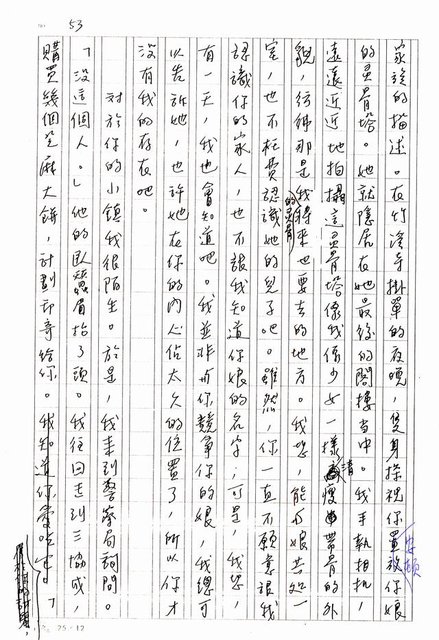 53
家族的描述。在竹溪寺掛單的夜晚，隻身探視你置放你娘
的靈骨塔。她就隱居在她最後的閣樓當中。我手執相机，
遠遠近近地拍攝這靈骨塔像我像少女一樣清瘦的外
貌，彷彿那是我將來也要去的地方。我想，能与娘共処一
室，也不枉費認識她的兒子吧。雖然，你一直不願意讓我
認識你的家人，也不讓我知道你娘的名字；可是，我想，
有一天，我也會知道吧。我並非而你競爭你的娘，我總可
以告訴她，也許她在你的內心佔太久的位置了，所以你才
沒有我的存在吧。
對於你的小鎮我很陌生。於是，我走到警察局詢問。
「沒這個人。」他的臥蠶眉抬了頭。我往回走到三協成，
購買幾個芝麻大餅，計劃郵寄給你。我知道你愛吃它。
25×12